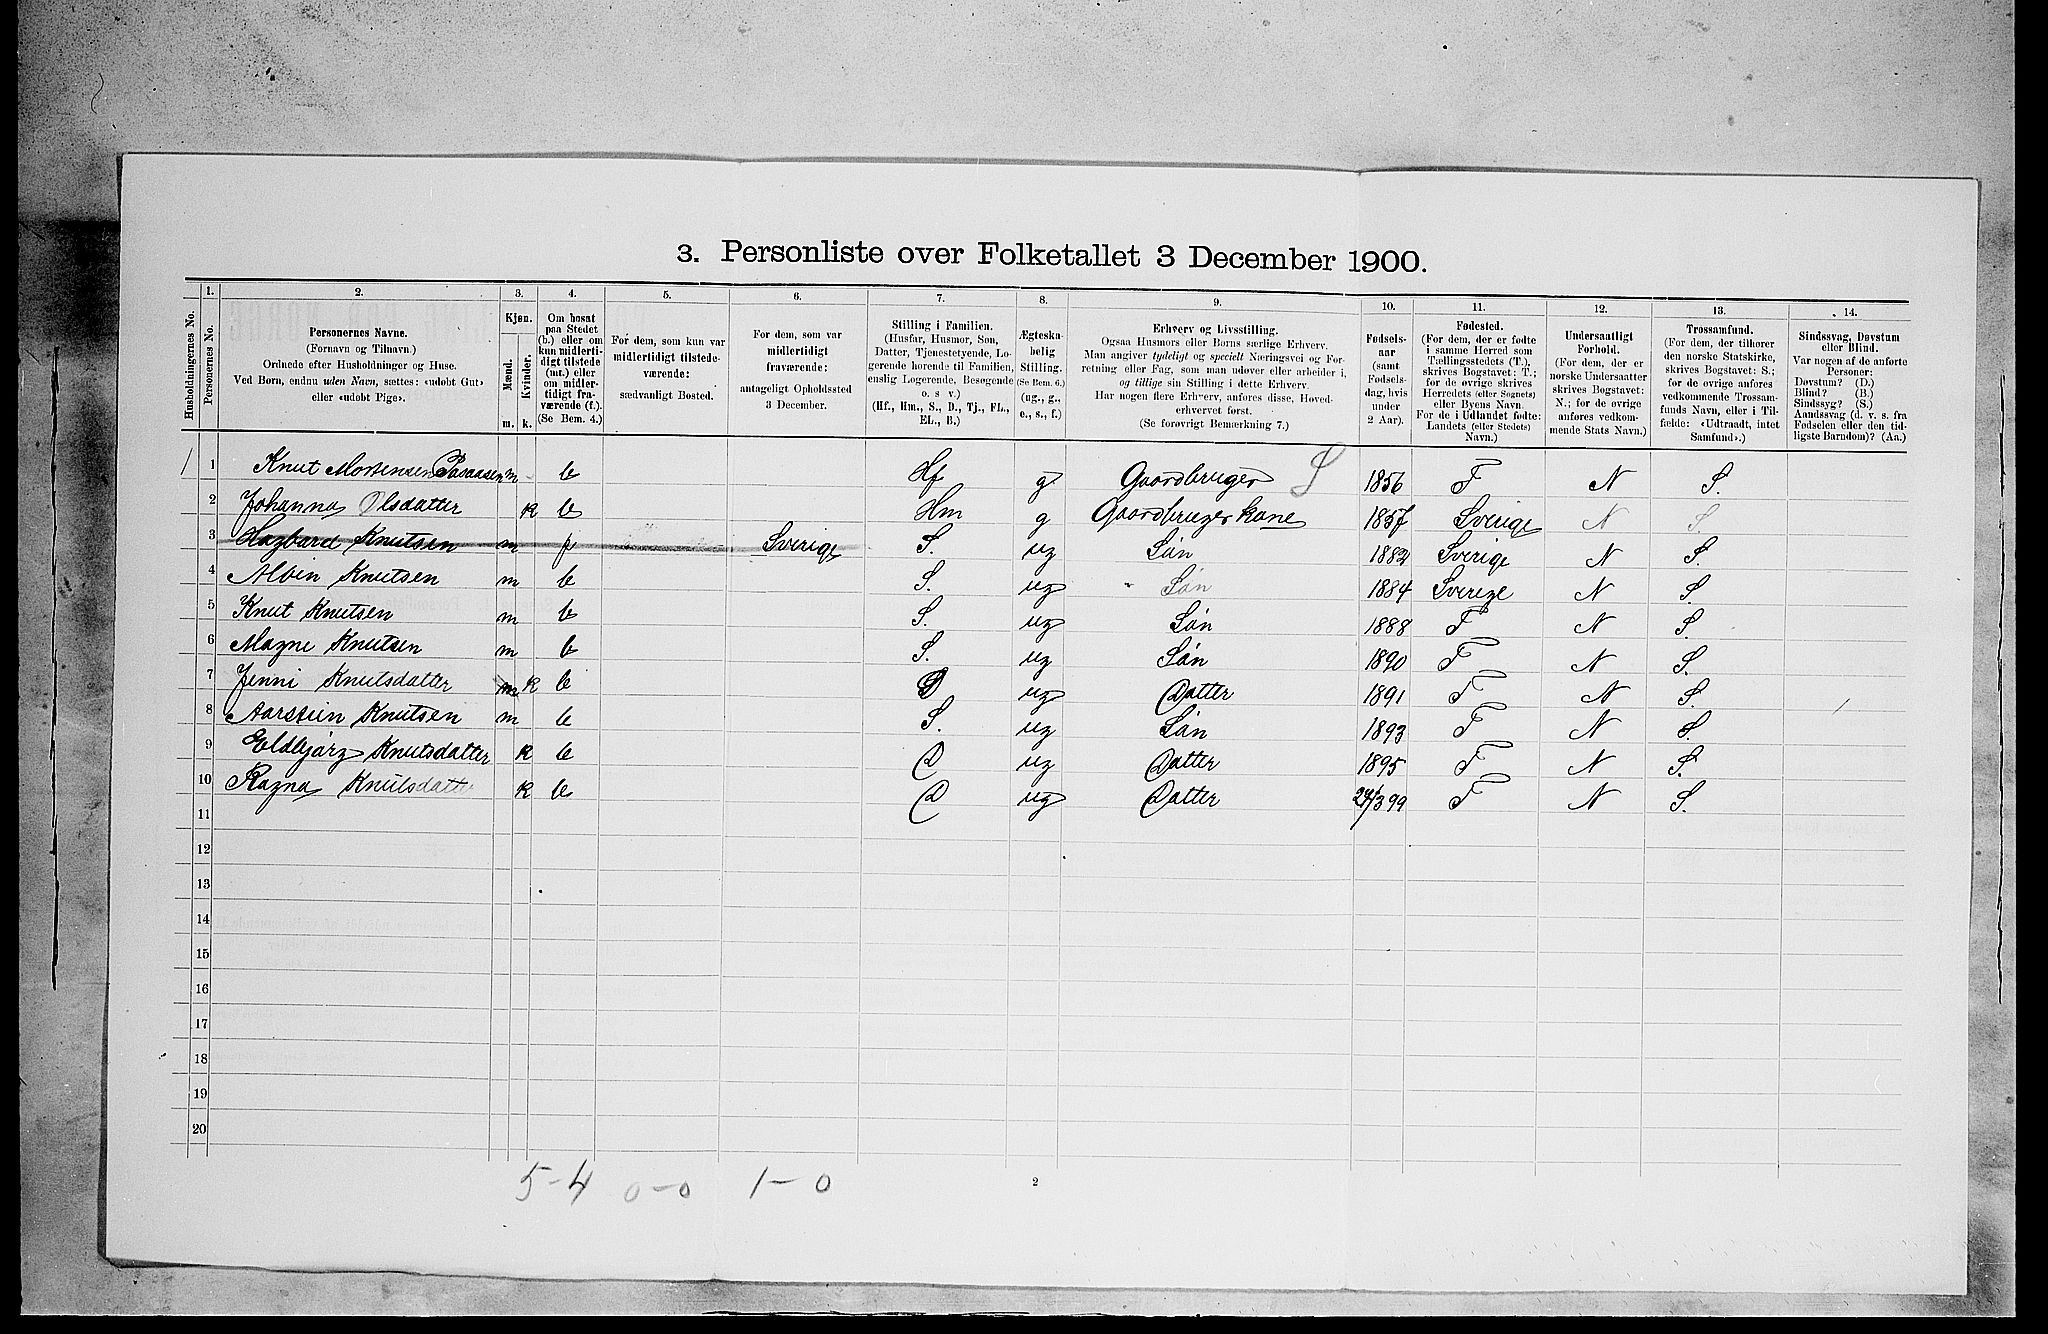 3. Personliste over Folketallet 3 December 1900.
Husholdningernes No.
1.
Personernes No.
2.
Personernes Navne.
(Fornavn og Tilnavn.)
Ordnede efter Husholdninger og Huse.
Ved Børn, endnu uden Navn, sættes: «udøbt Gut»
eller «udøbt Pige».
3.
Kjøn.
Mænd.
Kvinder.
m. k.
4.
Om bosat
paa Stedet
(b.) eller om
kun midlerti-
digt tilstede
(mt.) eller
om midler-
tidigt fra-
værende (f.).
(Se Bem. 4.)
5.
For dem, som kun var
midlertidigt tilstede-
værende:
sædvanligt Bosted.
6.
For dem, som var
midlertidigt
fraværende:
antageligt Opholdssted
3 December.
7.
Stilling i Familien.
(Husfar, Husmor, Søn,
Datter, Tjenestetyende, Lo-
gerende hørende til Familien,
enslig Logerende, Besøgende
o. s. v.)
(Hf., Hm., S., D., Tj., FL.,
EL., B.)
8.
Ægteska-
belig
Stilling.
(Se Bem. 6.)
(ug., g.,
e., s., f.)
9.
Erhverv og Livsstilling.
Ogsaa Husmors eller Børns særlige Erhverv.
Man angiver tydeligt og specielt Næringsvei og For-
retning eller Fag, som man udøver eller arbeider i,
og tillige sin Stilling i dette Erhverv.
Har nogen flere Erhverv, anføres disse, Hoved-
erhvervet først.
(Se forøvrigt Bemærkning 7.)
10.
Fødsels-
aar
(samt
Fødsels-
dag, hvis
under
2 Aar).
11.
Fødested.
(For dem, der er fødte
i samme Herred som
Tællingsstedets (T.),
skrives Bogstavet: T.;
for de øvrige skrives
Herredets (eller Sognets)
eller Byens Navn.
For de i Udlandet fødte:
Landets (eller Stedets)
Navn.)
12.
Undersaatligt
Forhold.
(For dem, der er
norske Undersaatter
skrives Bogstavet:
N.; for de øvrige
anføres vedkom-
mende Stats Navn.)
13.
Trossamfund.
(For dem, der tilhører
den norske Statskirke,
skrives Bogstavet: S.;
for de øvrige anføres
vedkommende Trossam-
funds Navn, eller i Til-
fælde: «Udtraadt, intet
Samfund».)
14.
Sindssvag, Døvstum
eller Blind.
Var nogen af de anførte
Personer:
Døvstum? (D.)
Blind? (B.)
Sindssyg? (S.)
Aandssvag (d. v. s. fra
Fødselen eller den tid-
ligste Barndom)? (Aa.)
1 1 Knut Mortensen m b Hf g Gaardbruger S 1856 T N S.
2 Johanna Olsdatter k b Hm g Gaardbruger kone 1857 Sverige N S
3 Hagbard Knutsen m f Sverige S. ug Søn 1882 Sverige N S.
4 Albin Knutsen m b S. ug " Søn 1884 Sverige N S.
5 Knut Knutsen m b S. ug Søn 1888 T N S.
6 Magne Knutsen m b S. ug Søn 1890 T N S.
7 Jenni Knutsdatter m k b D ug Datter 1891 T N S.
8 Aarstein Knutsen m b S. ug Søn 1893 T N S.
9 Eldbjørg Knutsdatter k b D ug Datter 1895 T N S.
10 Ragna Knutsdatter k b D ug Datter 24/3 99 T N S.
11
12
13
14
15
16
17
18
19
20
5-4 0-0 1-0
2